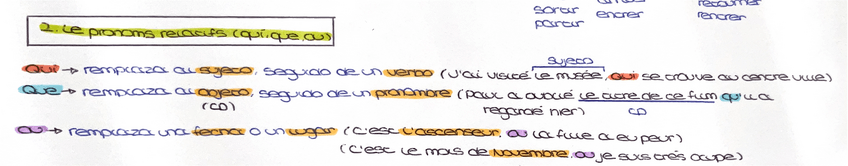 sortir
partir entrer rentrer
2. Le pronoms relatifs (qui, que, ou)
sujeto
Qui → remplaza au sujeto, seguido de un verbo (J'ai visité le musée, qui se trouve au centre ville)
Que → remplaza au objeto, seguido de un pronombre (Paul a oublié le titre de ce film qu'il a
(CD) regardé hier) CD
ou → remplaza una fecha o un lugar (C'est l'ascenseur, ou la fille a eu peur)
(C'est le mois de Novembre, ou je suis très occupé)